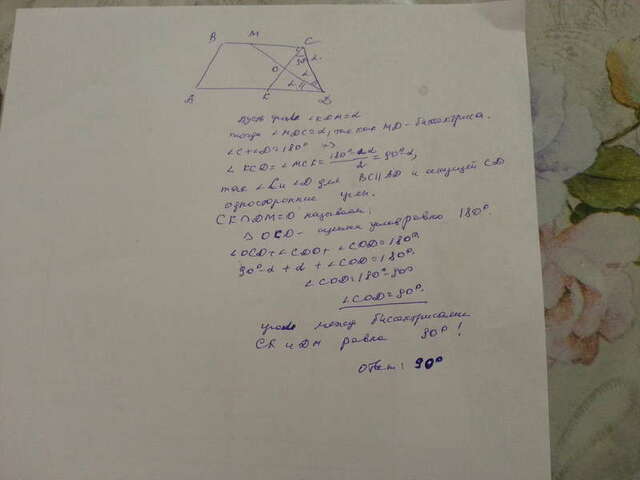 B M C
90°-α
O α
A K D
Пусть угол ∠KDM=α
тогда ∠MDC=α, так как MD - биссектриса.
∠C+∠D=180° =>
∠KCD=∠MCK= 180°-2α / 2 = 90°-α,
так ∠C и ∠D для BC||AD и секущей CD
односторонние углы.
CK∩DM=O назовём.
Δ OCD - сумма углов равно 180°.
∠OCD+∠CDO+∠COD=180°
90°-α+α+∠COD=180°
∠COD=180°-90°
∠COD=90°.
угол между биссектрисами
CK и DM равна 90°!
Ответ: 90°